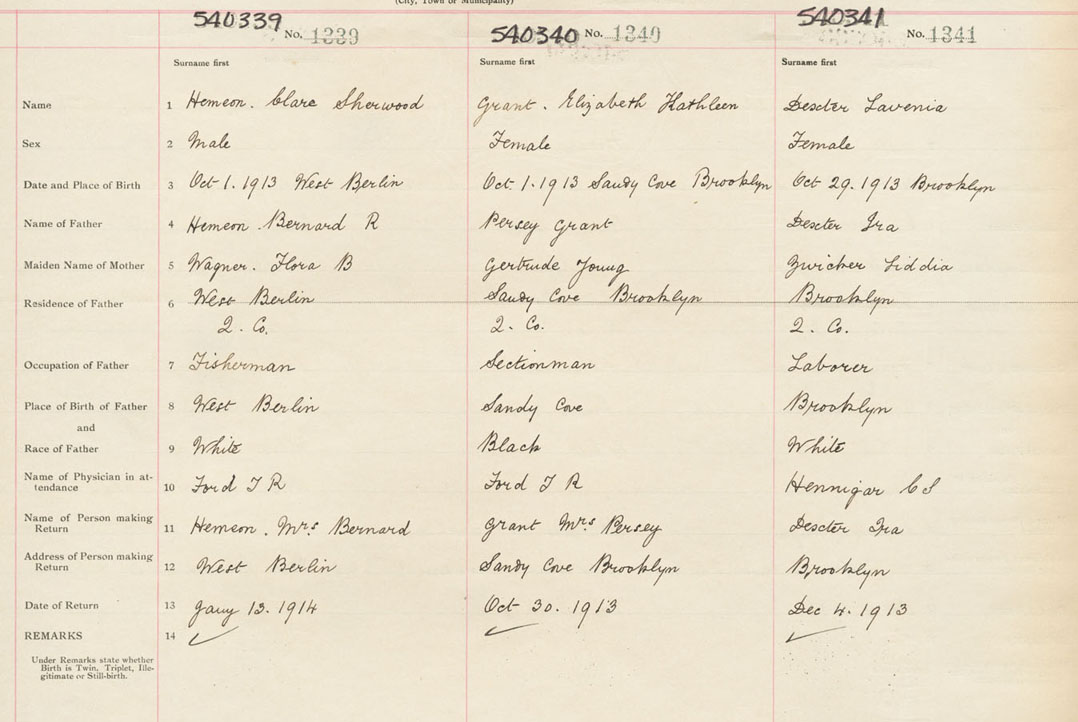 (City, Town or Municipality)
540339 No. 1339 540340 No. 1340 540341 No. 1341
Surname first Surname first Surname first
Name 1 Hemeon. Clare Sherwood Grant. Elizabeth Kathleen Dexter Lavenia
Sex 2 Male Female Female
Date and Place of Birth 3 Oct 1. 1913 West Berlin Oct. 1. 1913 Sandy Cove Brooklyn Oct 29. 1913 Brooklyn
Name of Father 4 Hemeon Bernard R Persey Grant Dexter Ira
Maiden Name of Mother 5 Wagner. Flora B Gertrude Young Zwicker Liddia
Residence of Father 6 West Berlin Sandy Cove Brooklyn Brooklyn
2. Co. 2. Co. 2. Co.
Occupation of Father 7 Fisherman Sectionman Laborer
Place of Birth of Father 8 West Berlin Sandy Cove Brooklyn
and
Race of Father 9 White Black White
Name of Physician in at-
tendance 10 Ford T R Ford T R Hennigar C S
Name of Person making
Return 11 Hemeon. Mrs. Bernard Grant Mrs. Persey Dexter Ira
Address of Person making
Return 12 West Berlin Sandy Cove Brooklyn Brooklyn
Date of Return 13 Jany 13. 1914 Oct 30. 1913 Dec 4. 1913
REMARKS 14
Under Remarks state whether
Birth is Twin, Triplet, Ille-
gitimate or Still-birth.